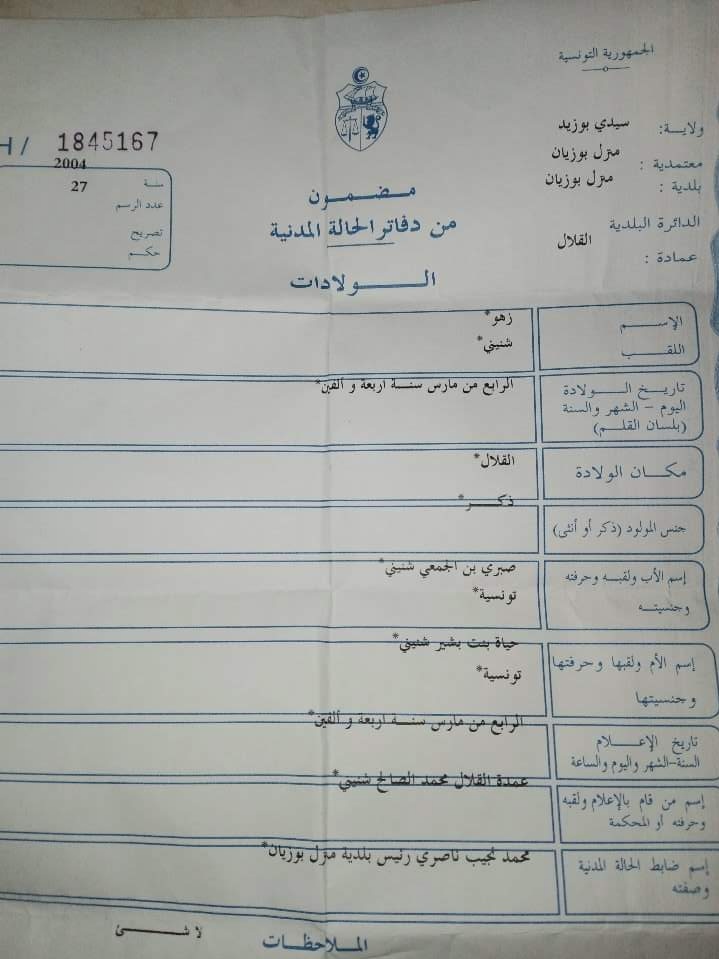 الجمهورية التونسية
ولاية: سيدي بوزيد
معتمدية : منزل بوزيان
بلدية : منزل بوزيان
الدائرة البلدية
عمادة : القلال
H/ 1845167
سنة 2004
عدد الرسم 27
تصريح
حكم
مضمون
من دفاتر الحالة المدنية
الولادات
الإسم زهو*
اللقب شنيني*
تاريخ الولادة
اليوم - الشهر والسنة
(بلسان القلم)
الرابع من مارس سنة اربعة و ألفين*
مكان الولادة القلال*
جنس المولود (ذكر أو أنثى) ذكر*
إسم الأب ولقبه وحرفته
وجنسيته
صبري بن الجمعي شنيني*
تونسية*
إسم الأم ولقبها وحرفتها
وجنسيتها
حياة بنت بشير شنيني*
تونسية*
تاريخ الإعلام
السنة-الشهر واليوم والساعة
الرابع من مارس سنة اربعة و ألفين*
إسم من قام بالإعلام ولقبه
وحرفته أو المحكمة
عمدة القلال محمد الصالح شنيني*
إسم ضابط الحالة المدنية
وصفته
محمد نجيب ناصري رئيس بلدية منزل بوزيان*
الملاحظات لا شئ